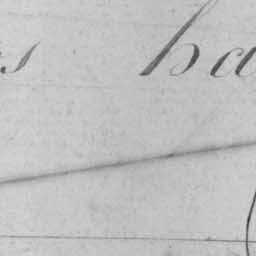 s ha